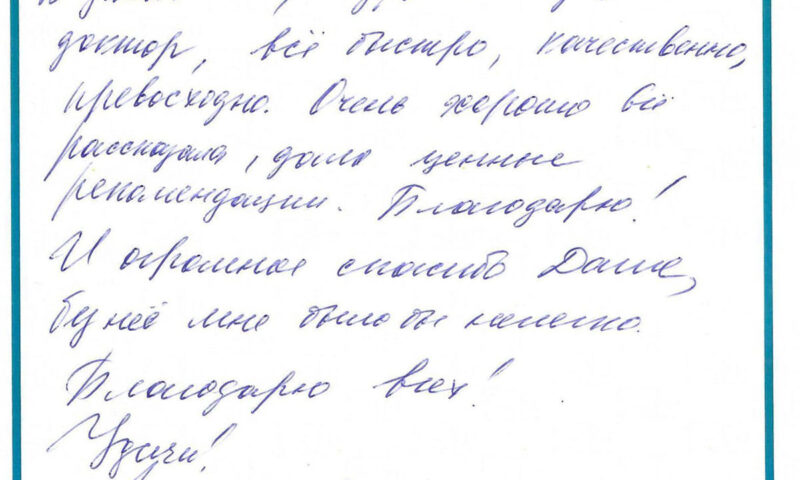 доктор, всё быстро, качественно,
превосходно. Очень хорошо всё
рассказала, дала ценные
рекомендации. Благодарю!
И огромное спасибо Даше,
без неё мне было бы нелегко.
Благодарю всех!
Удачи!